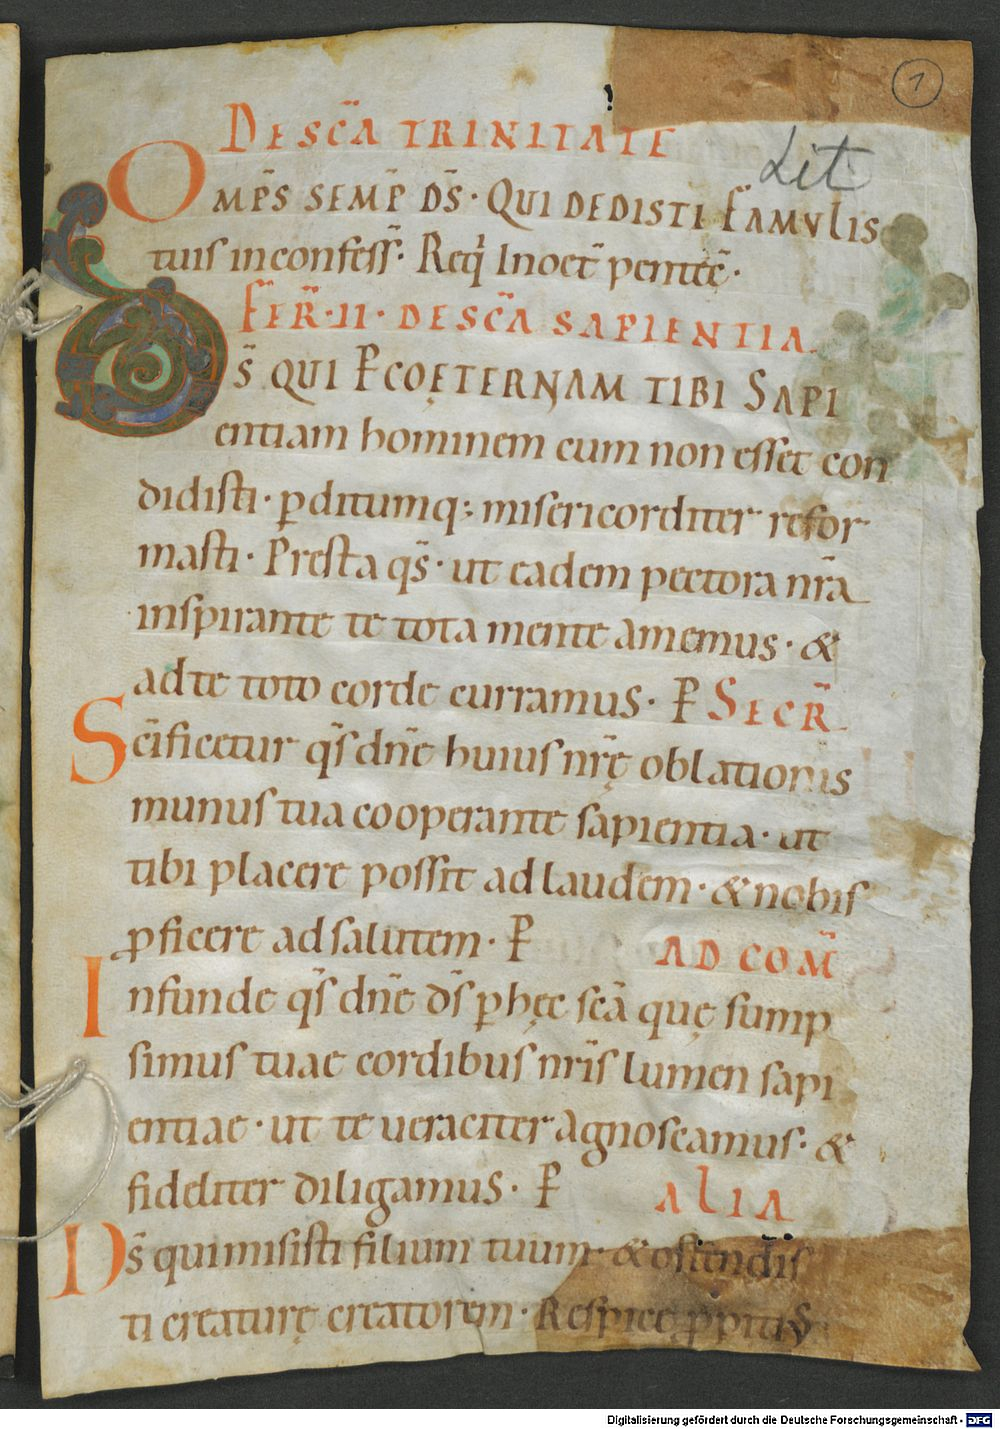 1
Lit
DE SC̄A TRINITATE
OMP̄S SEMP̄ DS̄· QUI DEDISTI FAMULIS
tuis in confess̄· Req̇ In oct̄ pentec̄·
FER̄·II· DE SC̄A SAPIENTIA
DS̄ QUI P̄ COĘTERNAM TIBI SAPI
entiam hominem cum non esset con
didisti· ꝑditumq; misericorditer refor
masti· Presta qs̄· ut eadem pectora nr̄a
inspirante te tota mente amemus· &
ad te toto corde curramus· P̄ SECR̄
Sc̄ificetur qs̄ dn̄e huius nr̄ę oblationis
munus tua cooperante sapientia· ut
tibi placere possit ad laudem· & nobis
ꝓficere ad salutem· P̄ AD COM̄
Infunde qs̄ dn̄e ds̄ ꝑ hęc sc̄a quę sump
simus tuae cordibus nr̄is lumen sapi
entiae· ut te veraciter agnoscamus· &
fideliter diligamus· P̄ ALIA
Ds̄ qui misisti filium tuum· & ostendis
ti creaturę creatorem· Respice ꝓpitius
Digitalisierung gefördert durch die Deutsche Forschungsgemeinschaft - DFG